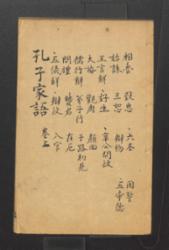 相魯 致思 六本 困誓
始誅 三恕 辯物 五帝德
王言解 好生 哀公問政
大婚 觀周 顏回
儒行解 弟子行 子路初見
問禮 賢君 在厄
五儀解 辯政 入官
孔子家語 卷三